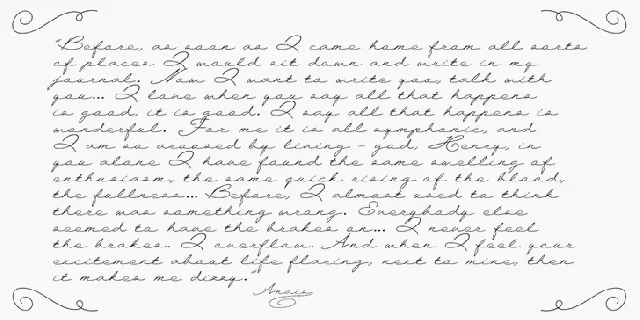 "Before, as soon as I came home from all sorts
of places I would sit down and write in my
journal. Now I want to write you, talk with
you... I love when you say all that happens
is good, it is good. I say all that happens is
wonderful. For me it is all symphonic, and
I am so aroused by living - god, Henry, in
you alone I have found the same swelling of
enthusiasm, the same quick rising of the blood,
the fullness... Before, I almost used to think
there was something wrong. Everybody else
seemed to have the brakes on... I never feel
the brakes.. I overflow.. And when I feel your
excitement about life flaring, next to mine, then
it makes me dizzy."
Anais